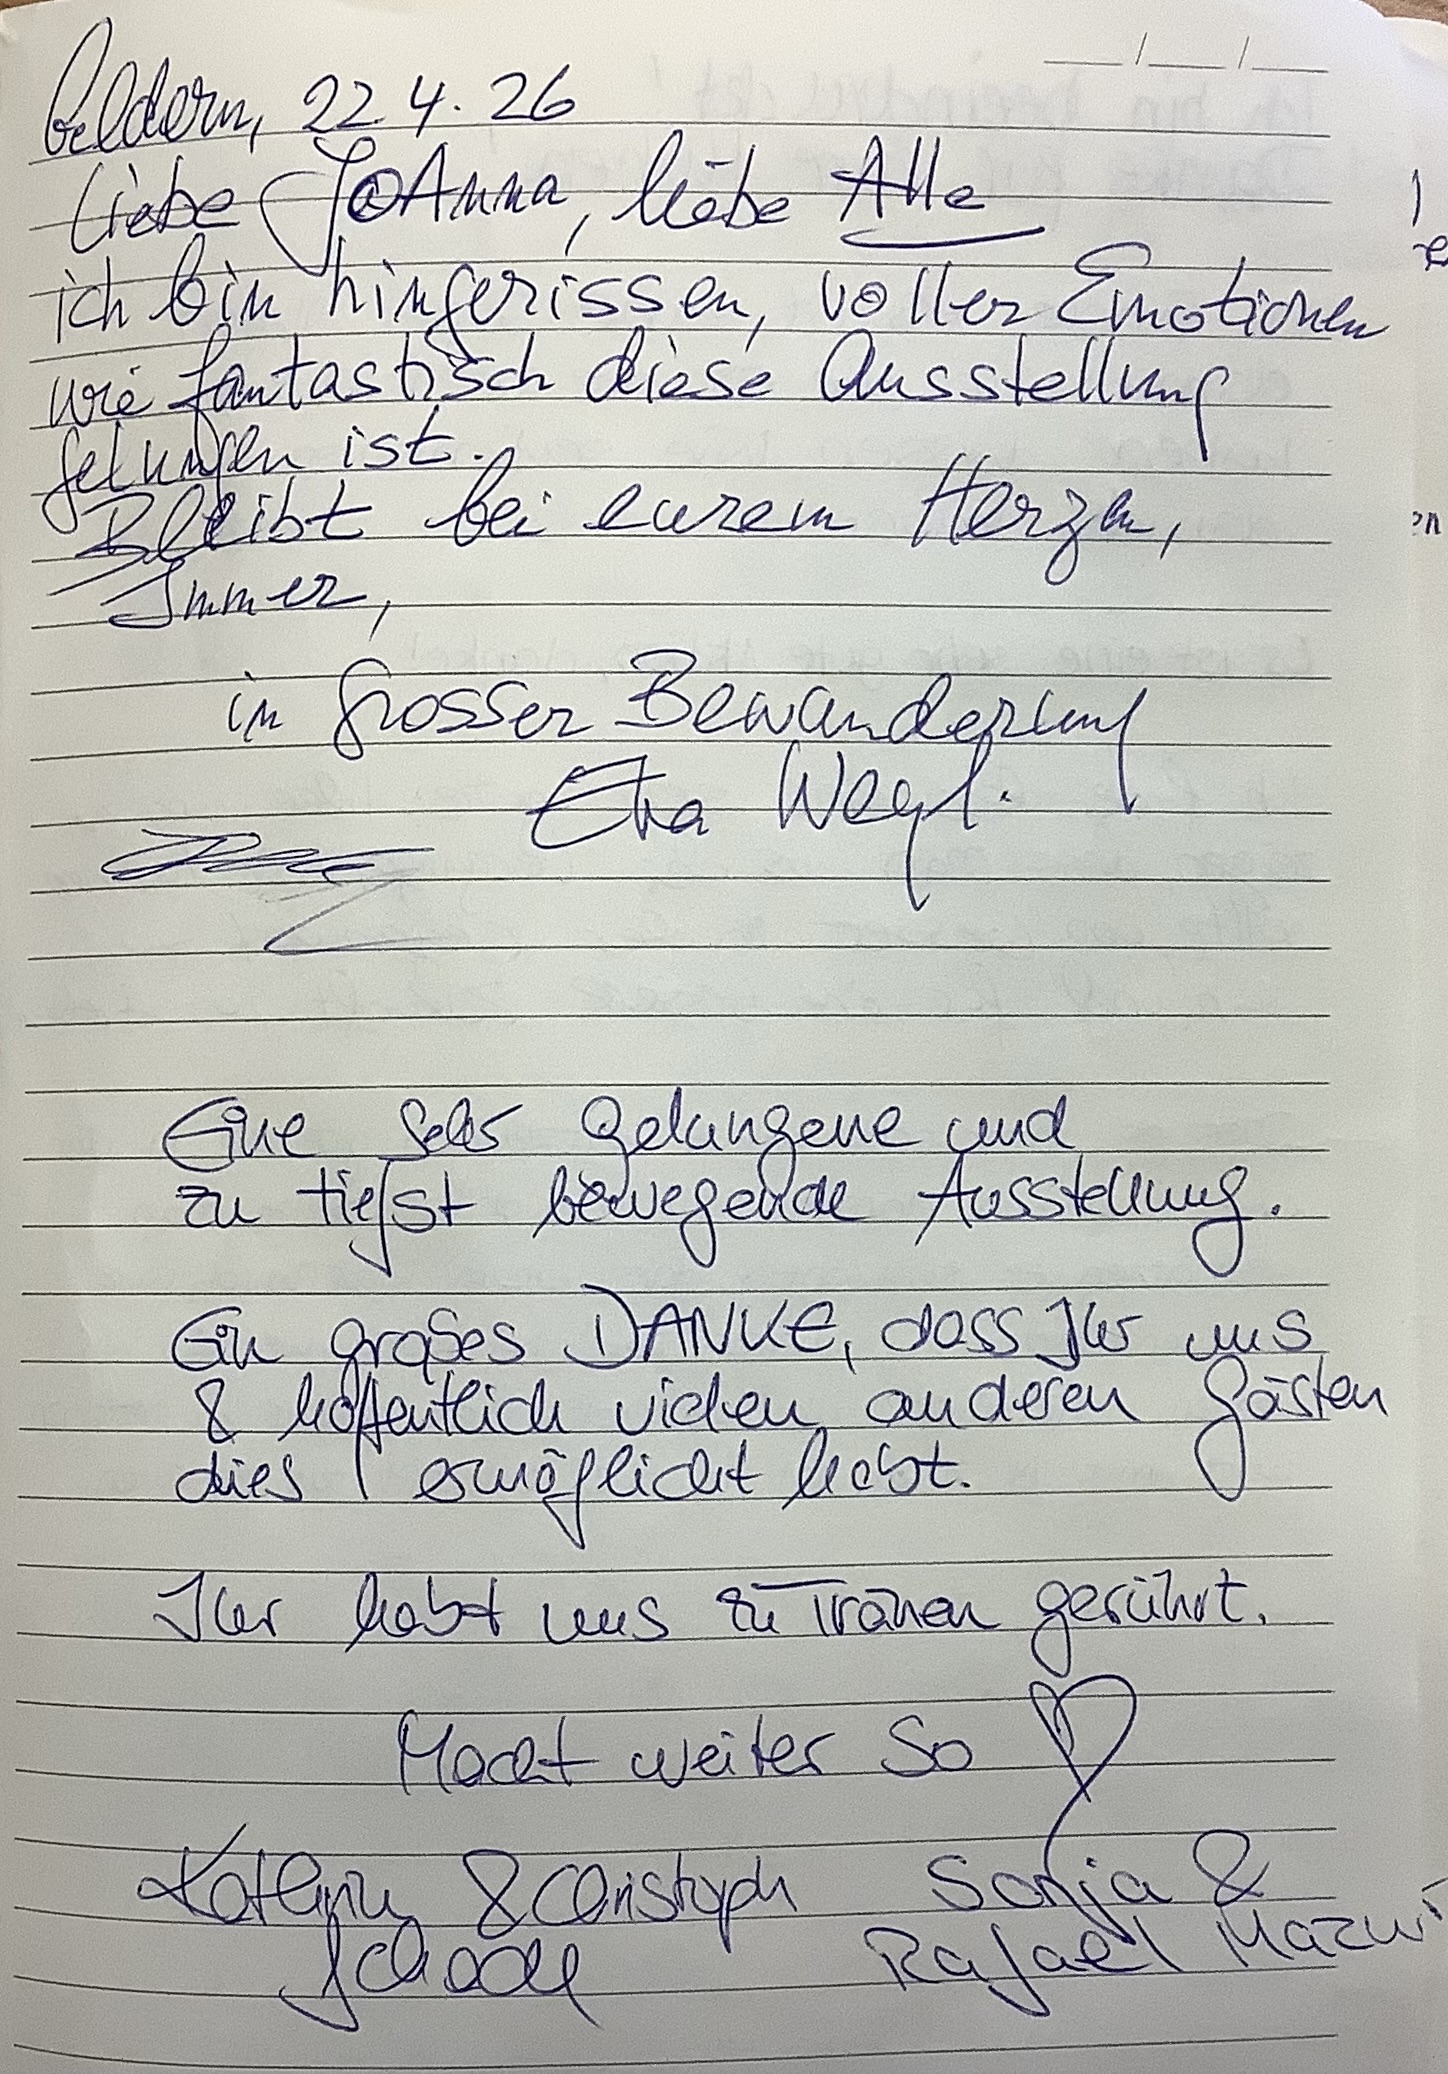 Geldern, 22.4.26
Liebe JoAnna, liebe Alle
ich bin hingerissen, voller Emotionen
wie fantastisch diese Ausstellung
gelungen ist.
Bleibt bei eurem Herzen,
Immer,
in grosser Bewunderung
Eva
Eine sehr gelungene und
zu tiefst bewegende Ausstellung.
Ein großes DANKE, dass Ihr uns
& hoffentlich vielen anderen Gästen
dies ermöglicht habt.
Ihr habt uns zu Tränen gerührt.
Macht weiter so
Kathrin & Christoph
Sonja &
Rafael